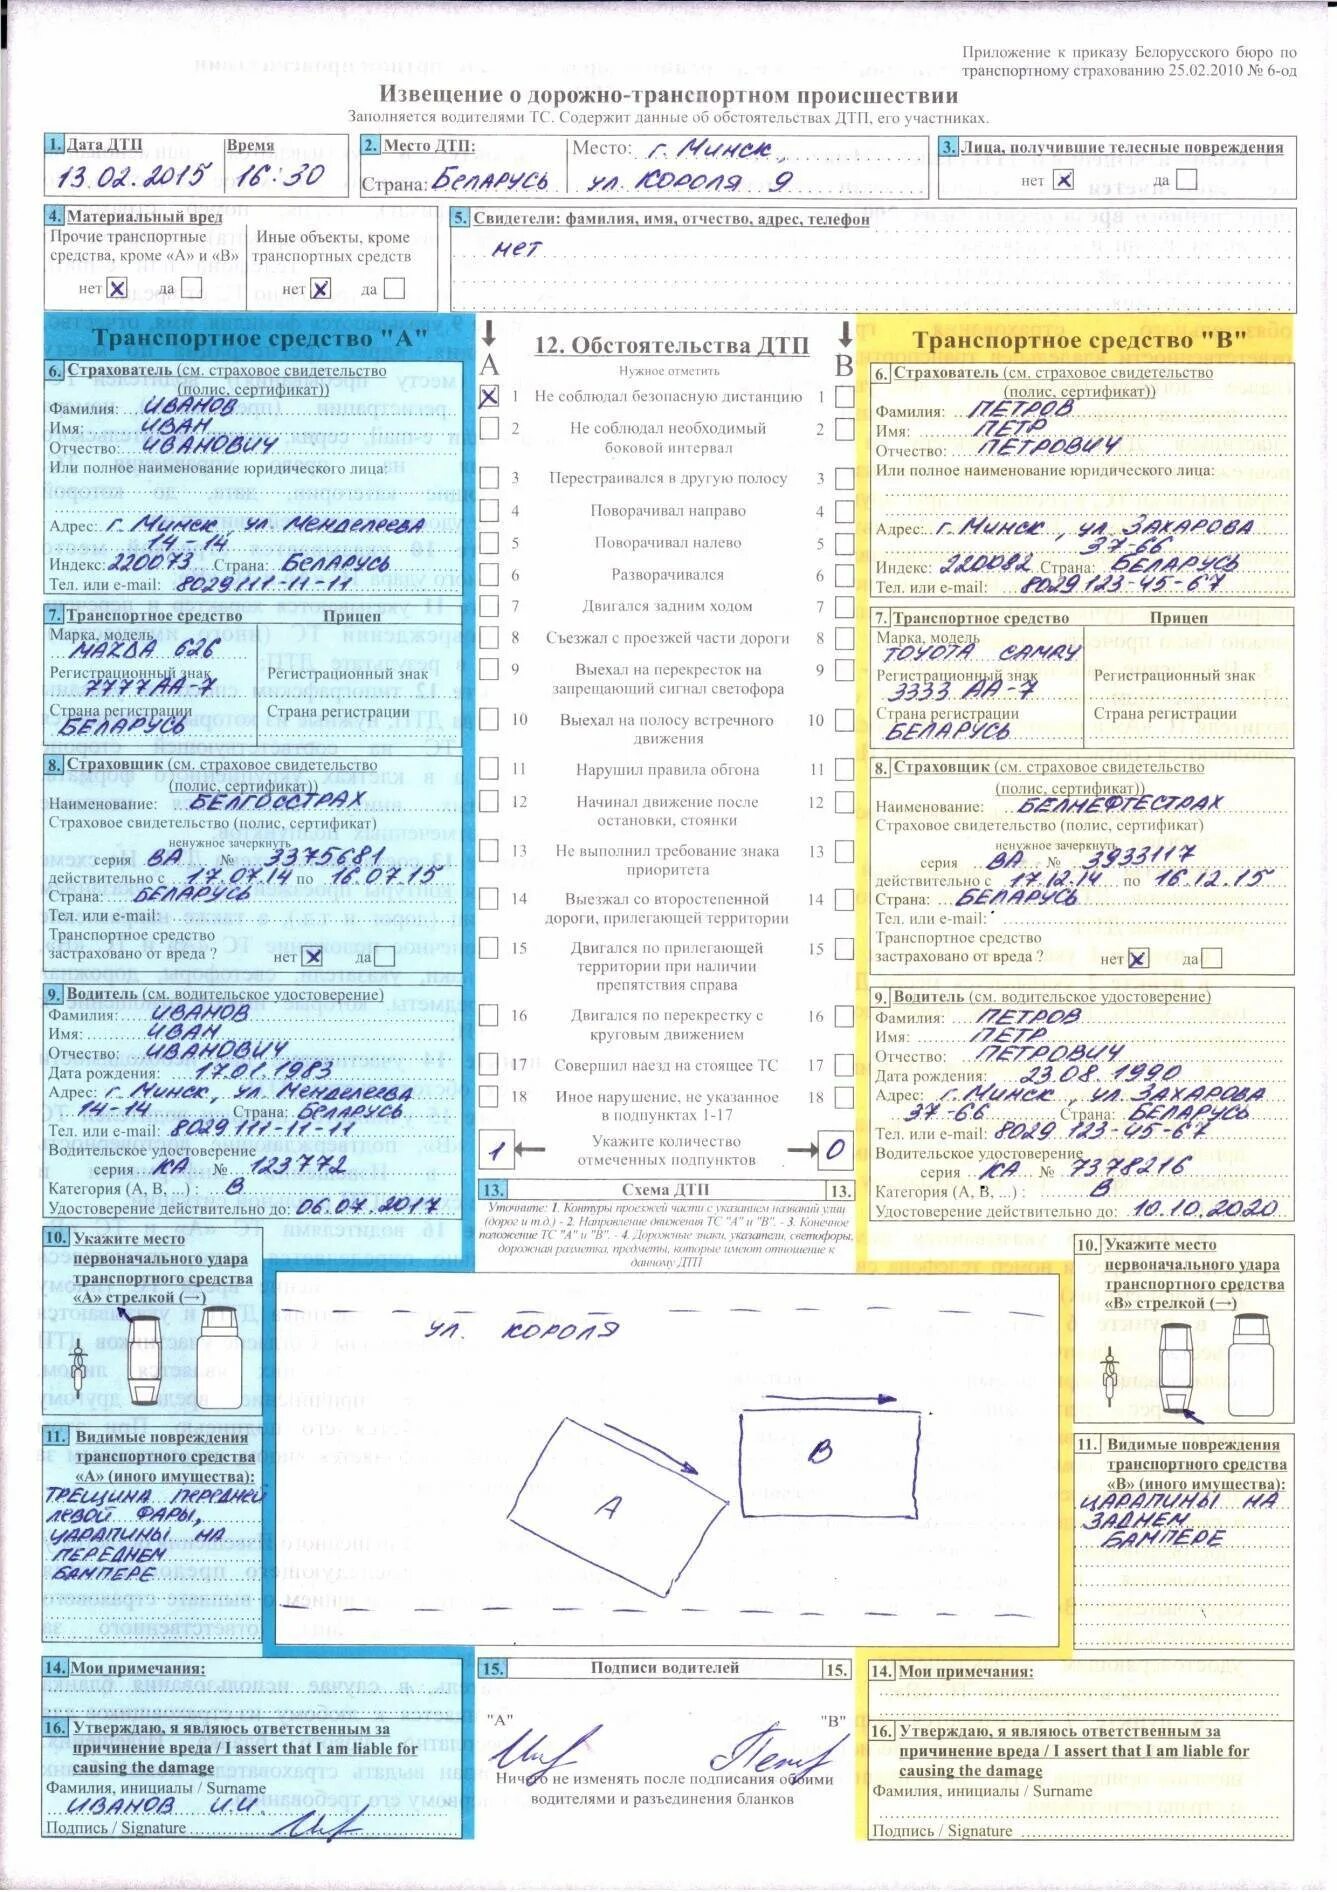 Приложение к приказу Белорусского бюро по
транспортному страхованию 25.02.2010 № 6-од
Извещение о дорожно-транспортном происшествии
Заполняется водителями ТС. Содержит данные об обстоятельствах ДТП, его участниках.
1. Дата ДТП Время
13.02.2015 16:30
2. Место ДТП: Место: г. Минск,
Страна: Беларусь ул. Короля 9
3. Лица, получившие телесные повреждения
нет X да
4. Материальный вред
Прочие транспортные средства, кроме «А» и «В»
нет X да
Иные объекты, кроме транспортных средств
нет X да
5. Свидетели: фамилия, имя, отчество, адрес, телефон
нет
Транспортное средство "А"
6. Страхователь (см. страховое свидетельство
(полис, сертификат))
Фамилия: Иванов
Имя: Иван
Отчество: Иванович
Или полное наименование юридического лица:
Адрес: г. Минск ул. Менделеева
14-14
Индекс: 220073 Страна: Беларусь
Тел. или e-mail: 8029 111-11-11
7. Транспортное средство Прицеп
Марка, модель
Мазда 626
Регистрационный знак Регистрационный знак
7777АА-7
Страна регистрации Страна регистрации
Беларусь
8. Страховщик (см. страховое свидетельство
(полис, сертификат))
Наименование: Белгосстрах
Страховое свидетельство (полис, сертификат)
ненужное зачеркнуть
серия ВА № 3375681
действительно с 17.07.14 по 16.07.15
Страна: Беларусь
Тел. или e-mail:
Транспортное средство
застраховано от вреда ? нет X да
9. Водитель (см. водительское удостоверение)
Фамилия: Иванов
Имя: Иван
Отчество: Иванович
Дата рождения: 17.01.1983
Адрес: г. Минск, ул. Менделеева
14-14 Страна: Беларусь
Тел. или e-mail: 8029 111-11-11
Водительское удостоверение
серия КА № 123772
Категория (А, В, ...) : В
Удостоверение действительно до: 06.07.2017
10. Укажите место
первоначального удара
транспортного средства
«А» стрелкой (→)
11. Видимые повреждения
транспортного средства
«А» (иного имущества):
трещина передней
левой фары,
царапины на
переднем
бампере
14. Мои примечания:
16. Утверждаю, я являюсь ответственным за
причинение вреда / I assert that I am liable for
causing the damage
Фамилия, инициалы / Surname
Иванов И.И.
Подпись / Signature
А 12. Обстоятельства ДТП В
Нужное отметить
X 1 Не соблюдал безопасную дистанцию 1
2 Не соблюдал необходимый 2
боковой интервал
3 Перестраивался в другую полосу 3
4 Поворачивал направо 4
5 Поворачивал налево 5
6 Разворачивался 6
7 Двигался задним ходом 7
8 Съезжал с проезжей части дороги 8
9 Выехал на перекресток на 9
запрещающий сигнал светофора
10 Выехал на полосу встречного 10
движения
11 Нарушил правила обгона 11
12 Начинал движение после 12
остановки, стоянки
13 Не выполнил требование знака 13
приоритета
14 Выезжал со второстепенной 14
дороги, прилегающей территории
15 Двигался по прилегающей 15
территории при наличии
препятствия справа
16 Двигался по перекрестку с 16
круговым движением
17 Совершил наезд на стоящее ТС 17
18 Иное нарушение, не указанное 18
в подпунктах 1-17
1 Укажите количество 0
отмеченных подпунктов
13. Схема ДТП 13.
Уточните: 1. Контуры проезжей части с указанием названий улиц
(дорог и т.д.) - 2. Направление движения ТС "А" и "В". - 3. Конечное
положение ТС "А" и "В". - 4. Дорожные знаки, указатели, светофоры,
дорожная разметка, предметы, которые имеют отношение к
данному ДТП
ул. Короля
А
В
15. Подписи водителей 15.
"А" "В"
Ничего не изменять после подписания обоими
водителями и разъединения бланков
Транспортное средство "В"
6. Страхователь (см. страховое свидетельство
(полис, сертификат))
Фамилия: Петров
Имя: Петр
Отчество: Петрович
Или полное наименование юридического лица:
Адрес: г. Минск, ул. Захарова
37-66
Индекс: 220082 Страна: Беларусь
Тел. или e-mail: 8029 123-45-67
7. Транспортное средство Прицеп
Марка, модель
Toyota Camry
Регистрационный знак Регистрационный знак
3333 АА-7
Страна регистрации Страна регистрации
Беларусь
8. Страховщик (см. страховое свидетельство
(полис, сертификат))
Наименование: Белнефтестрах
Страховое свидетельство (полис, сертификат)
ненужное зачеркнуть
серия ВА № 3933117
действительно с 17.12.14 по 16.12.15
Страна: Беларусь
Тел. или e-mail:
Транспортное средство
застраховано от вреда ? нет X да
9. Водитель (см. водительское удостоверение)
Фамилия: Петров
Имя: Петр
Отчество: Петрович
Дата рождения: 23.08.1990
Адрес: г. Минск, ул. Захарова
37-66 Страна: Беларусь
Тел. или e-mail: 8029 123-45-67
Водительское удостоверение
серия КА № 7378216
Категория (А, В, ...) : В
Удостоверение действительно до: 10.10.2020
10. Укажите место
первоначального удара
транспортного средства
«В» стрелкой (→)
11. Видимые повреждения
транспортного средства
«В» (иного имущества):
царапины на
заднем
бампере
14. Мои примечания:
16. Утверждаю, я являюсь ответственным за
причинение вреда / I assert that I am liable for
causing the damage
Фамилия, инициалы / Surname
Подпись / Signature